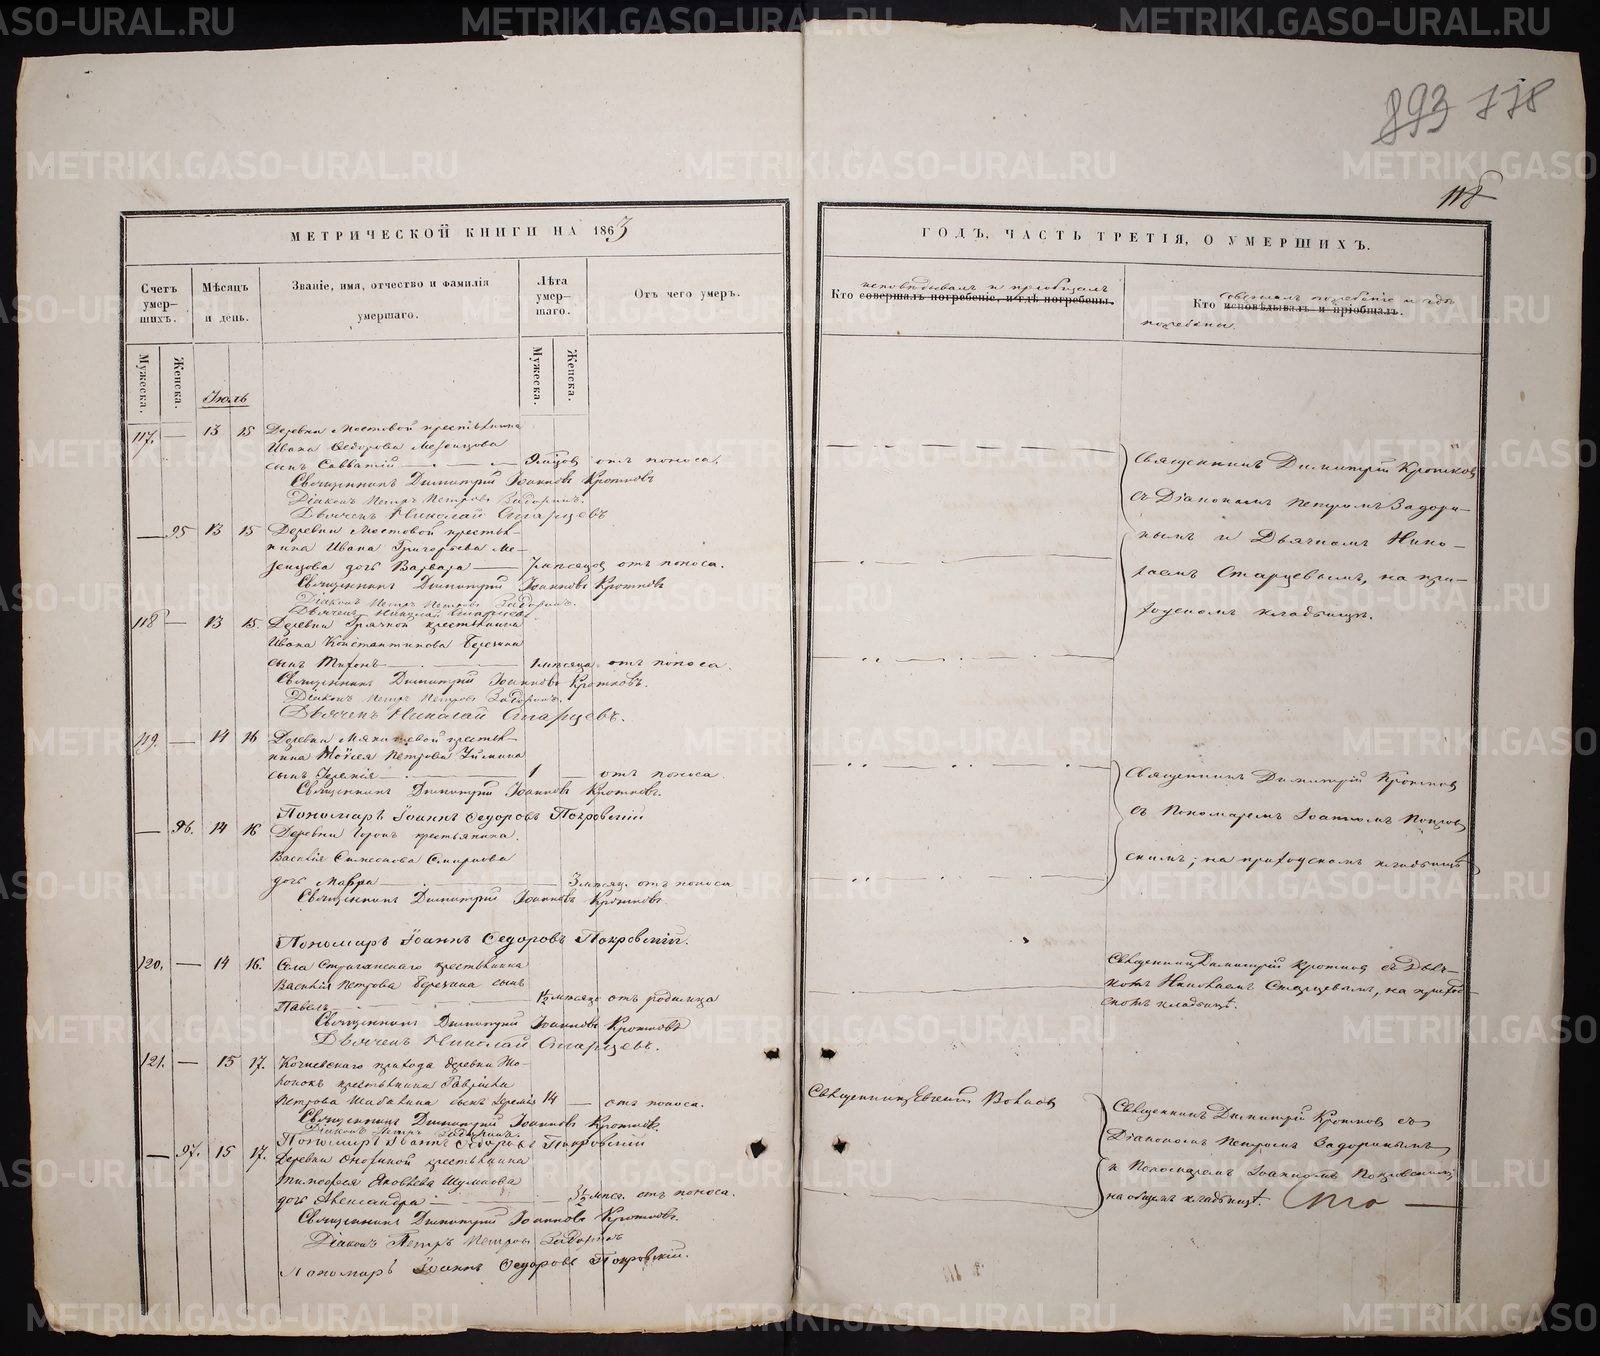 893 778
118
МЕТРИЧЕСКОЙ КНИГИ НА 1863
ГОДЪ, ЧАСТЬ ТРЕТІЯ, О УМЕРШИХЪ.
Счетъ умер-шихъ.
Мѣсяцъ и день.
Званіе, имя, отчество и фамилія умершаго.
Лѣта умер-шаго.
Отъ чего умеръ.
Кто совершалъ погребеніе, и гдѣ погребены.
исповѣдывалъ и пріобщалъ
Кто исповѣдывалъ и пріобщалъ.
совершалъ погребеніе и гдѣ
погребены.
Мужеска.
Женска.
Мужеска.
Женска.
Іюль
117. — 13 15 Деревни Мостовой крестьянина
Ивана Ѳедорова Мезенцова
сынъ Савватій — отъ поноса.
Священникъ Димитрій Іоанновъ Кротковъ
Діаконъ Петръ Петровъ Задоринъ.
Дьячекъ Николай Старцевъ
— 95 13 15 Деревни Мостовой крестья-
нина Ивана Григорьева Ме-
зенцова дочь Варвара — 7 мѣсяцов отъ поноса.
Священникъ Димитрій Іоанновъ Кротковъ
Діаконъ Петръ Петровъ Задоринъ.
Дьячекъ Николай Старцевъ
118 — 13 15. Деревни крестьянина
Ивана Константинова Березина
сынъ Тихонъ — 1 мѣсяца отъ поноса.
Священникъ Димитрій Іоанновъ Кротковъ.
Діаконъ Петръ Петровъ Задоринъ.
Дьячекъ Николай Старцевъ.
119. — 14 16 Деревни крестья-
нина Моѵсея Петрова
сынъ Іеремія — 1 — отъ поноса.
Священникъ Димитрій Іоанновъ Кротковъ.
Пономарь Іоаннъ Ѳедоровъ Покровскій
— 96. 14 16 Деревни крестьянина
Василія Симеонова Смирнова
дочь Мавра — 3 мѣсяц. отъ поноса
Священникъ Димитрій Іоанновъ Кротковъ
Пономарь Іоаннъ Ѳедоровъ Покровскій.
120. — 14 16. Села крестьянина
Василія Петрова Березина сынъ
Павелъ — 1½ мѣсяца отъ родимца
Священникъ Димитрій Іоанновъ Кротковъ
Дьячекъ Николай Старцевъ.
121. — 15 17. Кочневскаго прихода деревни
крестьянина Гавріила
Петрова сынъ Іеремія 14 — отъ поноса.
Священникъ Димитрій Іоанновъ Кротковъ.
Діаконъ Петръ Задоринъ.
Пономарь Іоаннъ Ѳедоровъ Покровскій
— 97. 15 17. Деревни крестьянина
Тимофея Яковлева Шумкова
дочь Александра — 3½ мѣс. отъ поноса.
Священникъ Димитрій Іоанновъ Кротковъ.
Діаконъ Петръ Петровъ Задоринъ
Пономарь Іоаннъ Ѳедоровъ Покровскій.
Священникъ Димитрій Кротковъ
съ Діакономъ Петромъ Задори-
нымъ и Дьячкомъ Нико-
лаемъ Старцевымъ, на при-
ходскомъ кладбищѣ.
Священникъ Димитрій Кротков
съ Пономаремъ Іоанномъ Покров-
скимъ; на приходскомъ кладбищѣ
Священникъ Димитрій Кротков съ Дьяч-
комъ Николаемъ Старцевымъ, на приход-
скомъ кладбищѣ.
Священникъ Евгеній
Священникъ Димитрій Кротков съ
Діакономъ Петромъ Задоринымъ
и Пономаремъ Іоанномъ Покровскимъ
на общемъ кладбищѣ.